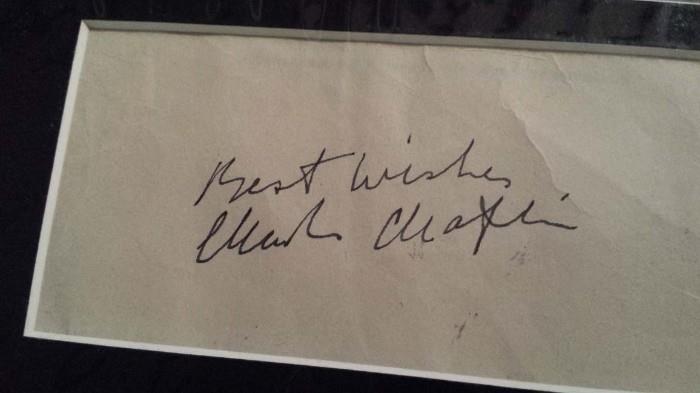 Best Wishes
Charles Chaplin